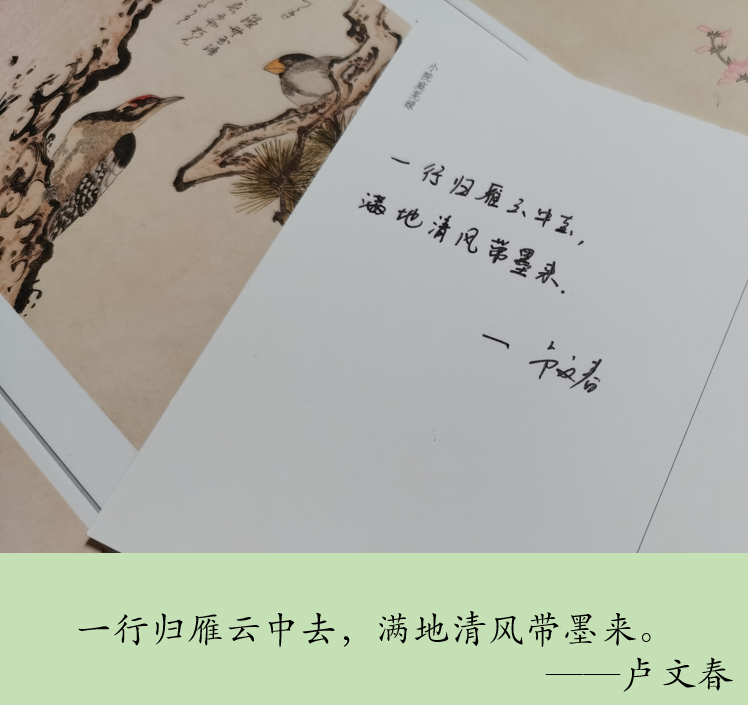 小院庭芜绿
一行归雁云中去,
满地清风带墨来.
— 卢文春
一行归雁云中去，满地清风带墨来。
——卢文春